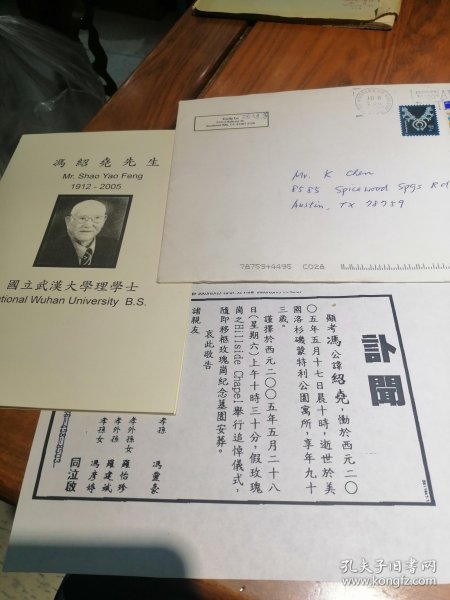 馮紹堯先生
Mr. Shao Yao Feng
1912 - 2005
國立武漢大學理學士
ational Wuhan University B.S.
Mr. K Chen
8585 Spicewood Spgs Rd
Austin, TX 78759
78759+4495 C028
訃聞
顯考馮公諱紹堯，慟於西元二〇
〇五年五月十七日晨十時，逝世於美
國洛杉磯蒙特利公園寓所，享年九十
三歲。
謹擇於西元二〇〇五年五月二十八
日(星期六)上午十時三十分，假玫瑰
崗之Hillside Chapel舉行追悼儀式，
隨即移柩玫瑰崗紀念墓園安葬。
哀此敬告
諸親友
孝孫 馮量豪
孝外孫女 羅怡珍
孝外孫 羅建斌
孝孫女 馮彥婷
同泣啟
孔夫子旧书网
www.kongfz.com